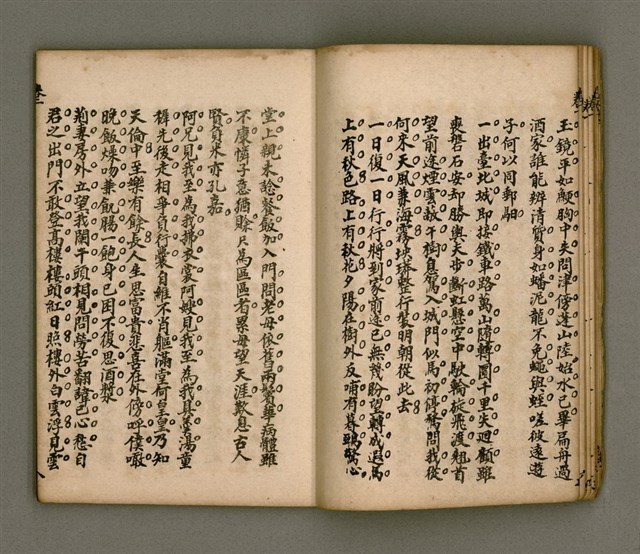 玉鏡平如顧胸中失問津傍逢山陸始水已畢扁舟過
酒家誰能辨清質身如蟠泥龍不免蠅與蛭嗟彼遠遊
子何以同郵馹
一出臺北城即搭鐵車路萬山隨轉圜千里失迴顧雖
喪磐石安却勝輿夫步斷虹懸空中駛輪旋飛渡翹首
望前途煙雲歛午樹息駕入城門似馬初停鶩問我從
何來天風兼海霧塊磷整行裝明朝從此去
一日復一日行行將到家前途已無幾盼望轉成遐馬
上有秋色路上有秋花夕陽在樹外反哺有暮鴉驚心
堂上親未諗餐飯加入門問老母依舊兩鬢華病體雖
不康憐子意猶賒只為區區者累母望天涯歎息古人
賢負米亦孔嘉
阿兄見我至為我拂衣裳阿嫂見我至為我具壺湯童
稺先後走相爭負行囊自維不肖軀滿堂何皇皇乃知
天倫中至樂有餘長人生思富貴悲喜在外傍呼僕噉
晚飯燥吻兼飢腸一飽身已困不復思酒漿
荊妻房外立望我闌干頭相見問勞苦翻諱己心愁自
君之出門不敢登高樓樓頭紅日照樓外白雲浮見雲